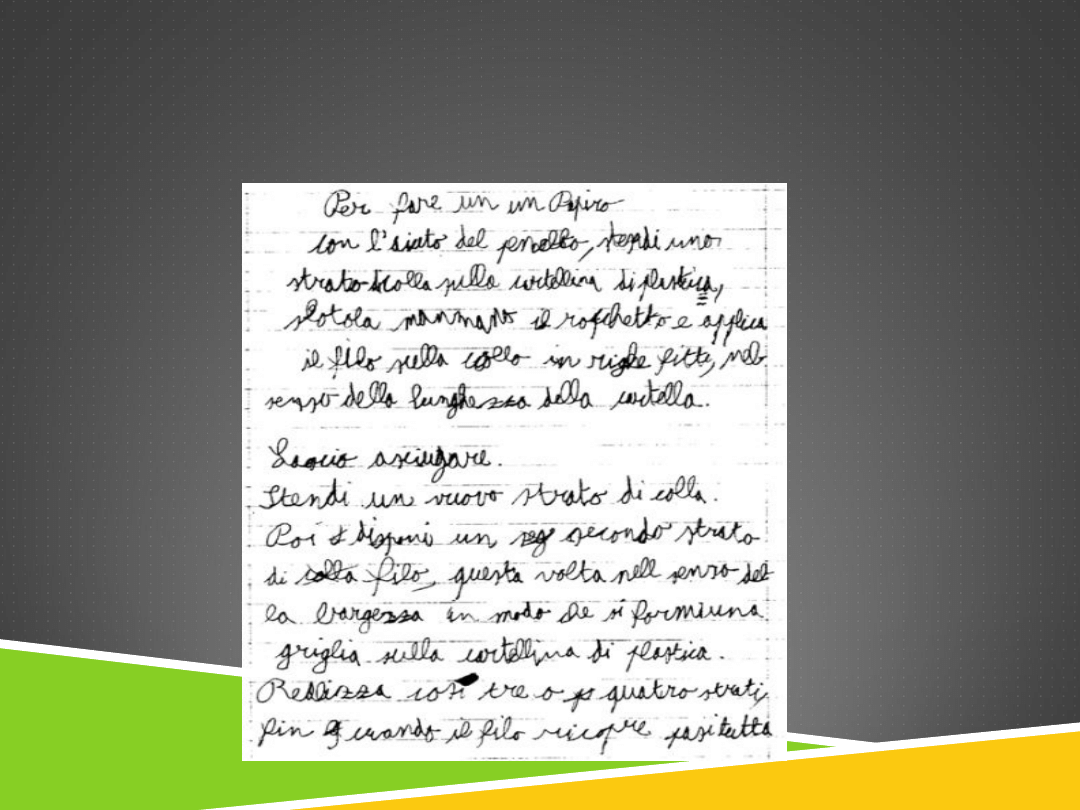 Per fare un un Papiro
con l'aiuto del pnello, stendi uno
strato di colla sulla cartellina di plastica,
slotola manmano il rocchetto e applica
il filo sulla collo in righe fitte, nel
senso della lunghezza della cartella.
Lascia asciugare.
Stendi un nuovo strato di colla.
Poi disponi un seg secondo strato
di colla filo, questa volta nell senso del
la largezza in modo che si formi una
griglia sulla cartellina di plastica.
Realizza così tre o quatro strati,
fin quando il filo ricopre tutta